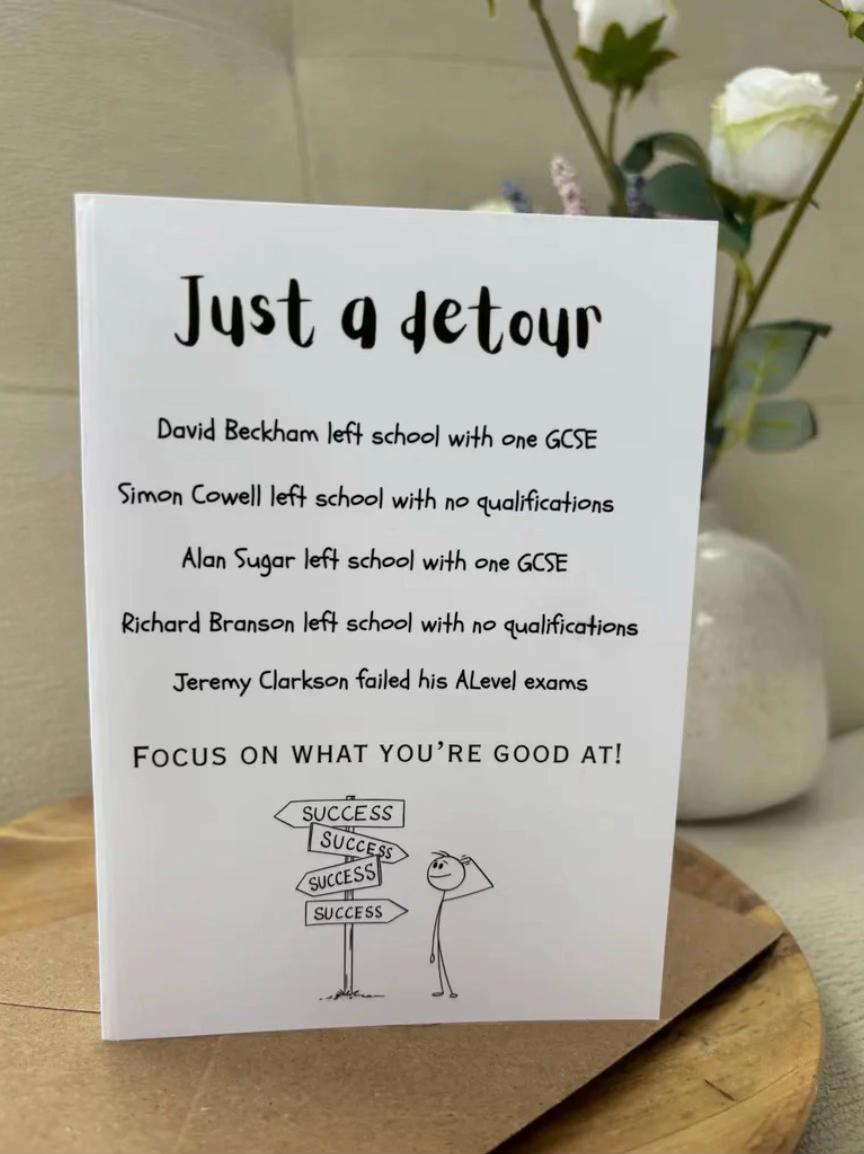 Just a detour
David Beckham left school with one GCSE
Simon Cowell left school with no qualifications
Alan Sugar left school with one GCSE
Richard Branson left school with no qualifications
Jeremy Clarkson failed his ALevel exams
FOCUS ON WHAT YOU'RE GOOD AT!
SUCCESS
SUCCESS
SUCCESS
SUCCESS